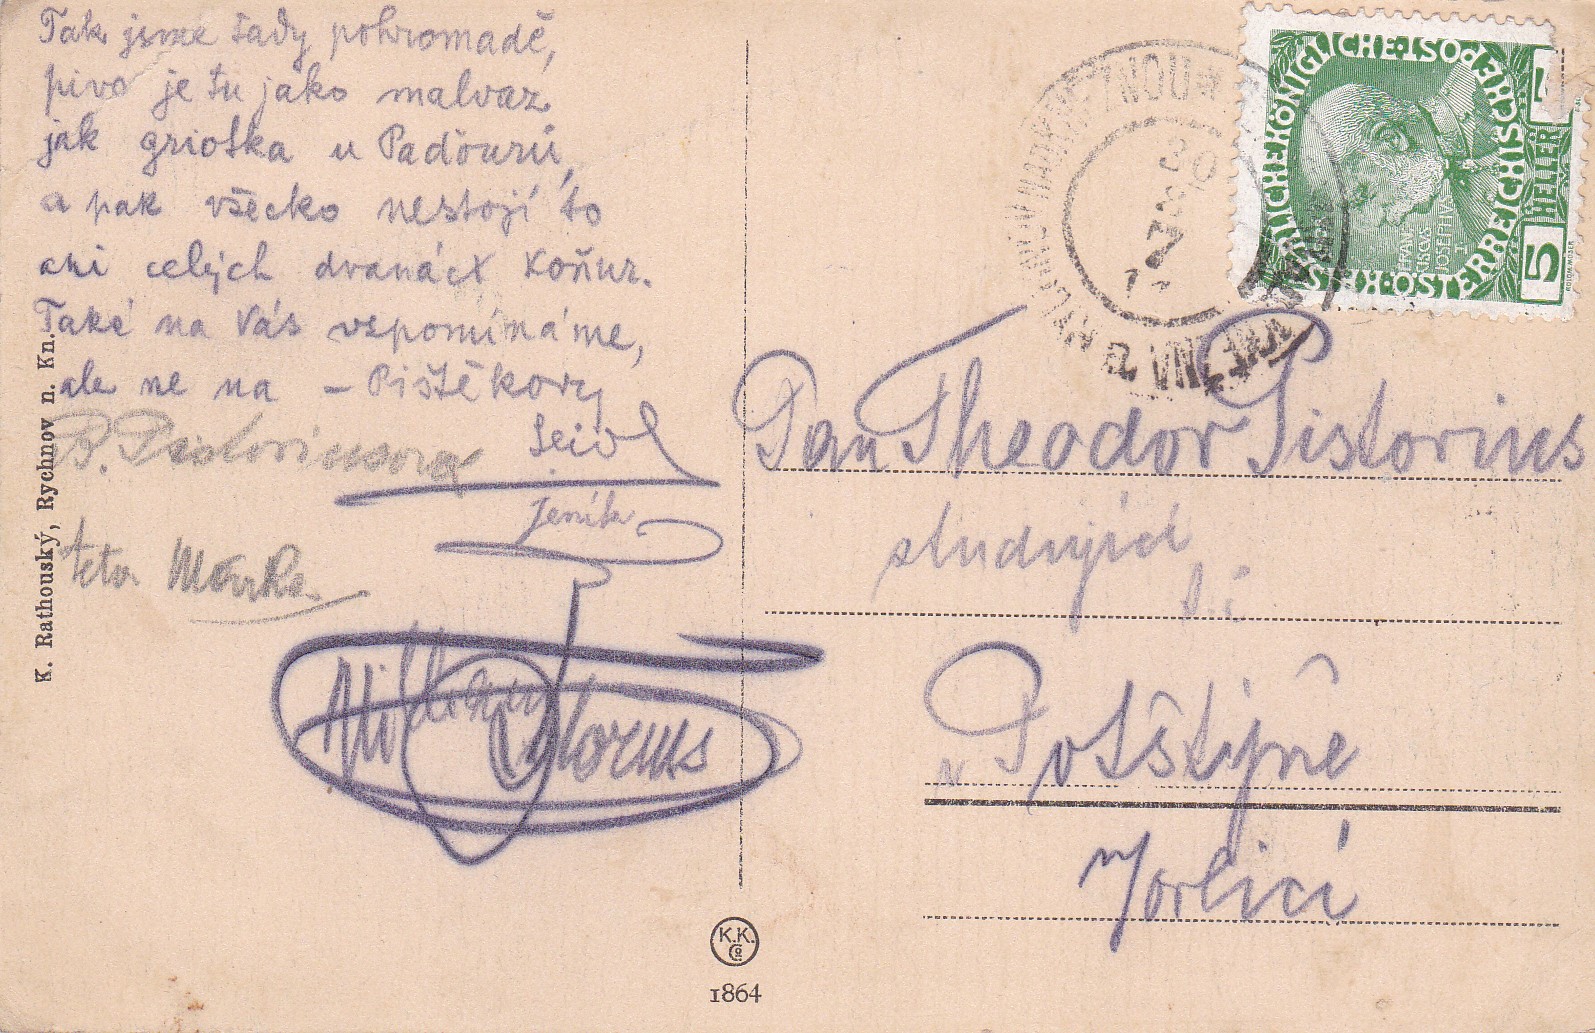 Tak jsme tady pohromadě,
pivo je tu jako malvaz
jak griotka u Padourů,
a pak všecko nestojí to
ani celých dvanáct koňur.
Také na Vás vzpomínáme,
ale ne na – Pištěkovy
B. Pistoriusova
Seidl
Jeník
teta
Pistorius
K. Rathouský, Rychnov n. Kn.
K.K.
Co
1864
KAISERLICHE KÖNIGLICHE ÖSTERREICHISCHE POST
5 HELLER
FRANCISCUS IOSEPHUS I
30
7
Pan Theodor Pistorius
studující
v Potštýně
n/Orlicí